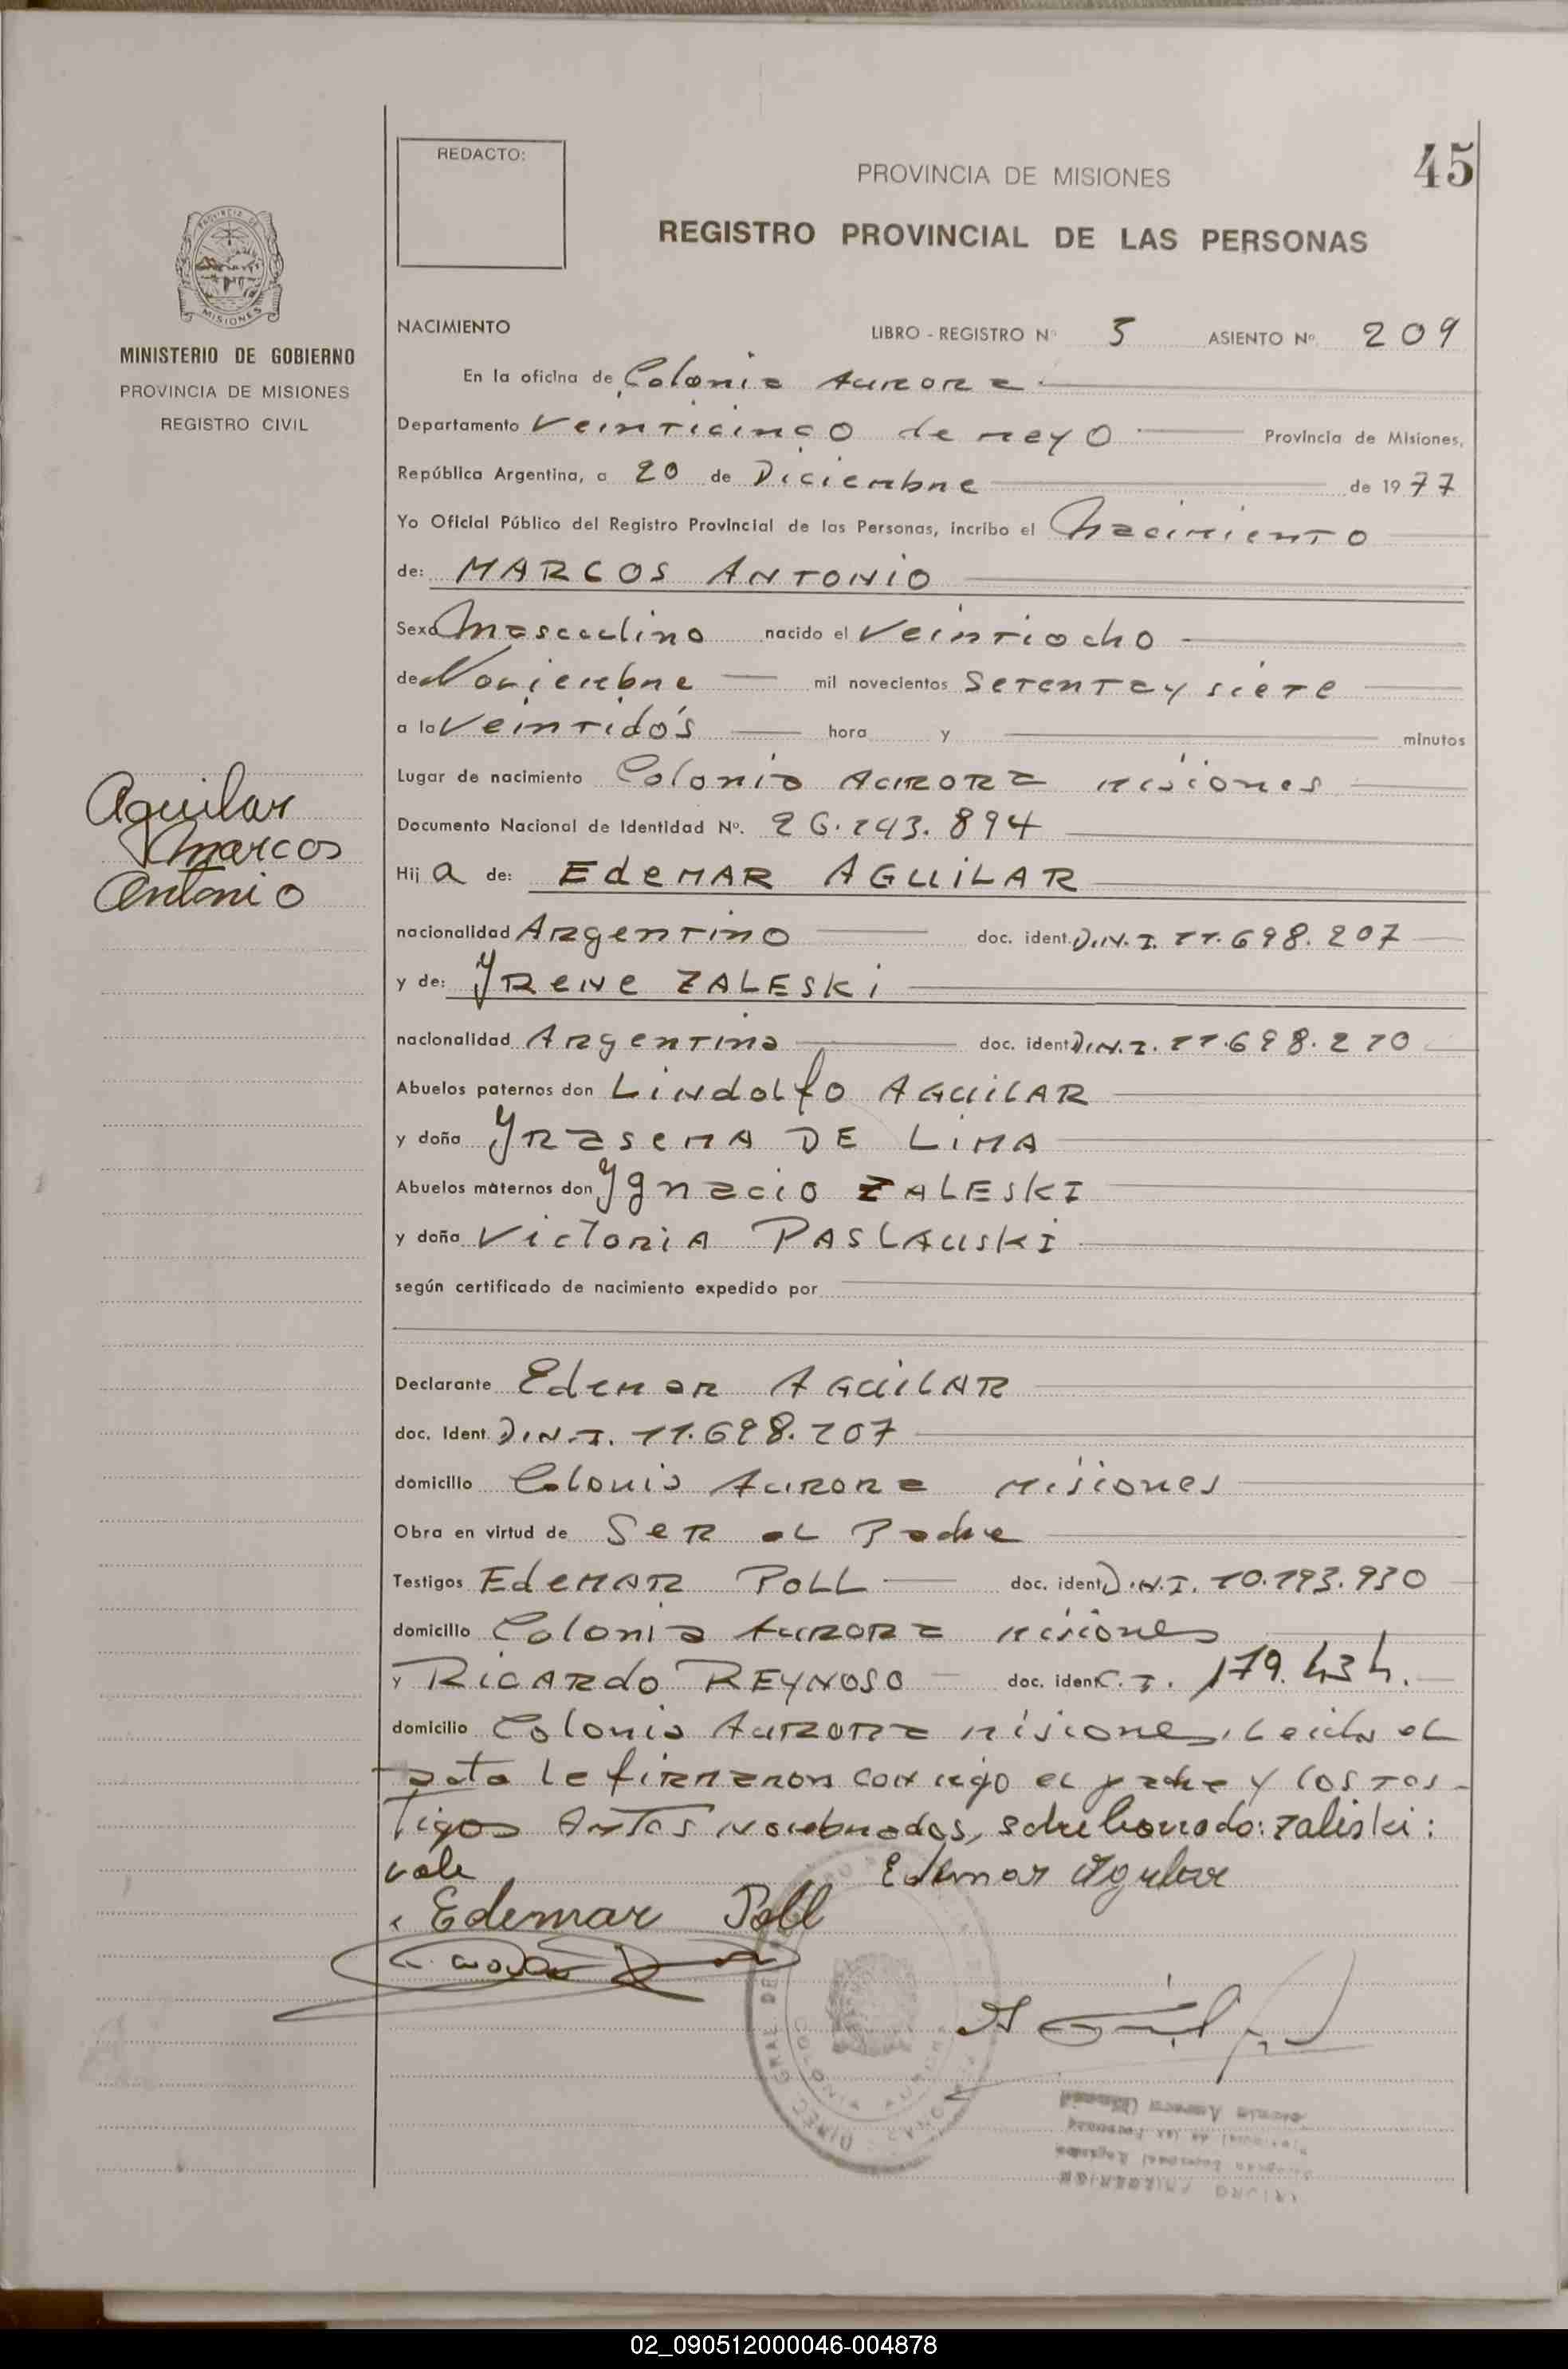 REDACTO:
PROVINCIA DE MISIONES
45
REGISTRO PROVINCIAL DE LAS PERSONAS
PROVINCIA DE
MISIONES
MINISTERIO DE GOBIERNO
PROVINCIA DE MISIONES
REGISTRO CIVIL
NACIMIENTO LIBRO - REGISTRO Nº ASIENTO Nº 209
En la oficina de Colonia Aurora
Departamento Veinticinco de mayo Provincia de Misiones,
República Argentina, a 20 de Diciembre de 1977
Yo Oficial Público del Registro Provincial de las Personas, incribo el Nacimiento
de: MARCOS ANTONIO
Sexo Masculino nacido el Veintiocho
de Noviembre mil novecientos Setenta y siete
a la Veintidós hora y minutos
Lugar de nacimiento Colonia Aurora misiones
Aguilar
Marcos
Antonio
Documento Nacional de Identidad Nº. 26.243.894
Hij a de: EdeMAR AGUILAR
nacionalidad Argentino doc. ident. D.N.I. 11.698.207
y de: YRENE ZALESKi
nacionalidad Argentina doc. ident. D.N.I. 11.698.210
Abuelos paternos don Lindolfo AGUILAR
y doña YRaseMA DE LIMA
Abuelos maternos don Ygnacio ZALESKI
y doña Victoria PASLAUSKI
según certificado de nacimiento expedido por
Declarante Edemar AGUILAR
doc. Ident. D.N.I. 11.698.207
domicilio Colonia Aurora Misiones
Obra en virtud de Ser el Padre
Testigos EdeMAR POLL doc. ident. D.N.I. 10.793.930
domicilio Colonia Aurora misiones
y RICARDO REYNOSO doc. ident. C.I. 179.434.
domicilio Colonia Aurora misiones, Leida el
acta le firmaron conmigo el padre y los tes-
tigos Antes nombrados, sobre borrado: Zaliski:
vale Edemar Aguilar
Edemar Poll
DIREC. GRAL. DE
COLONIA AURORA
02_090512000046-004878